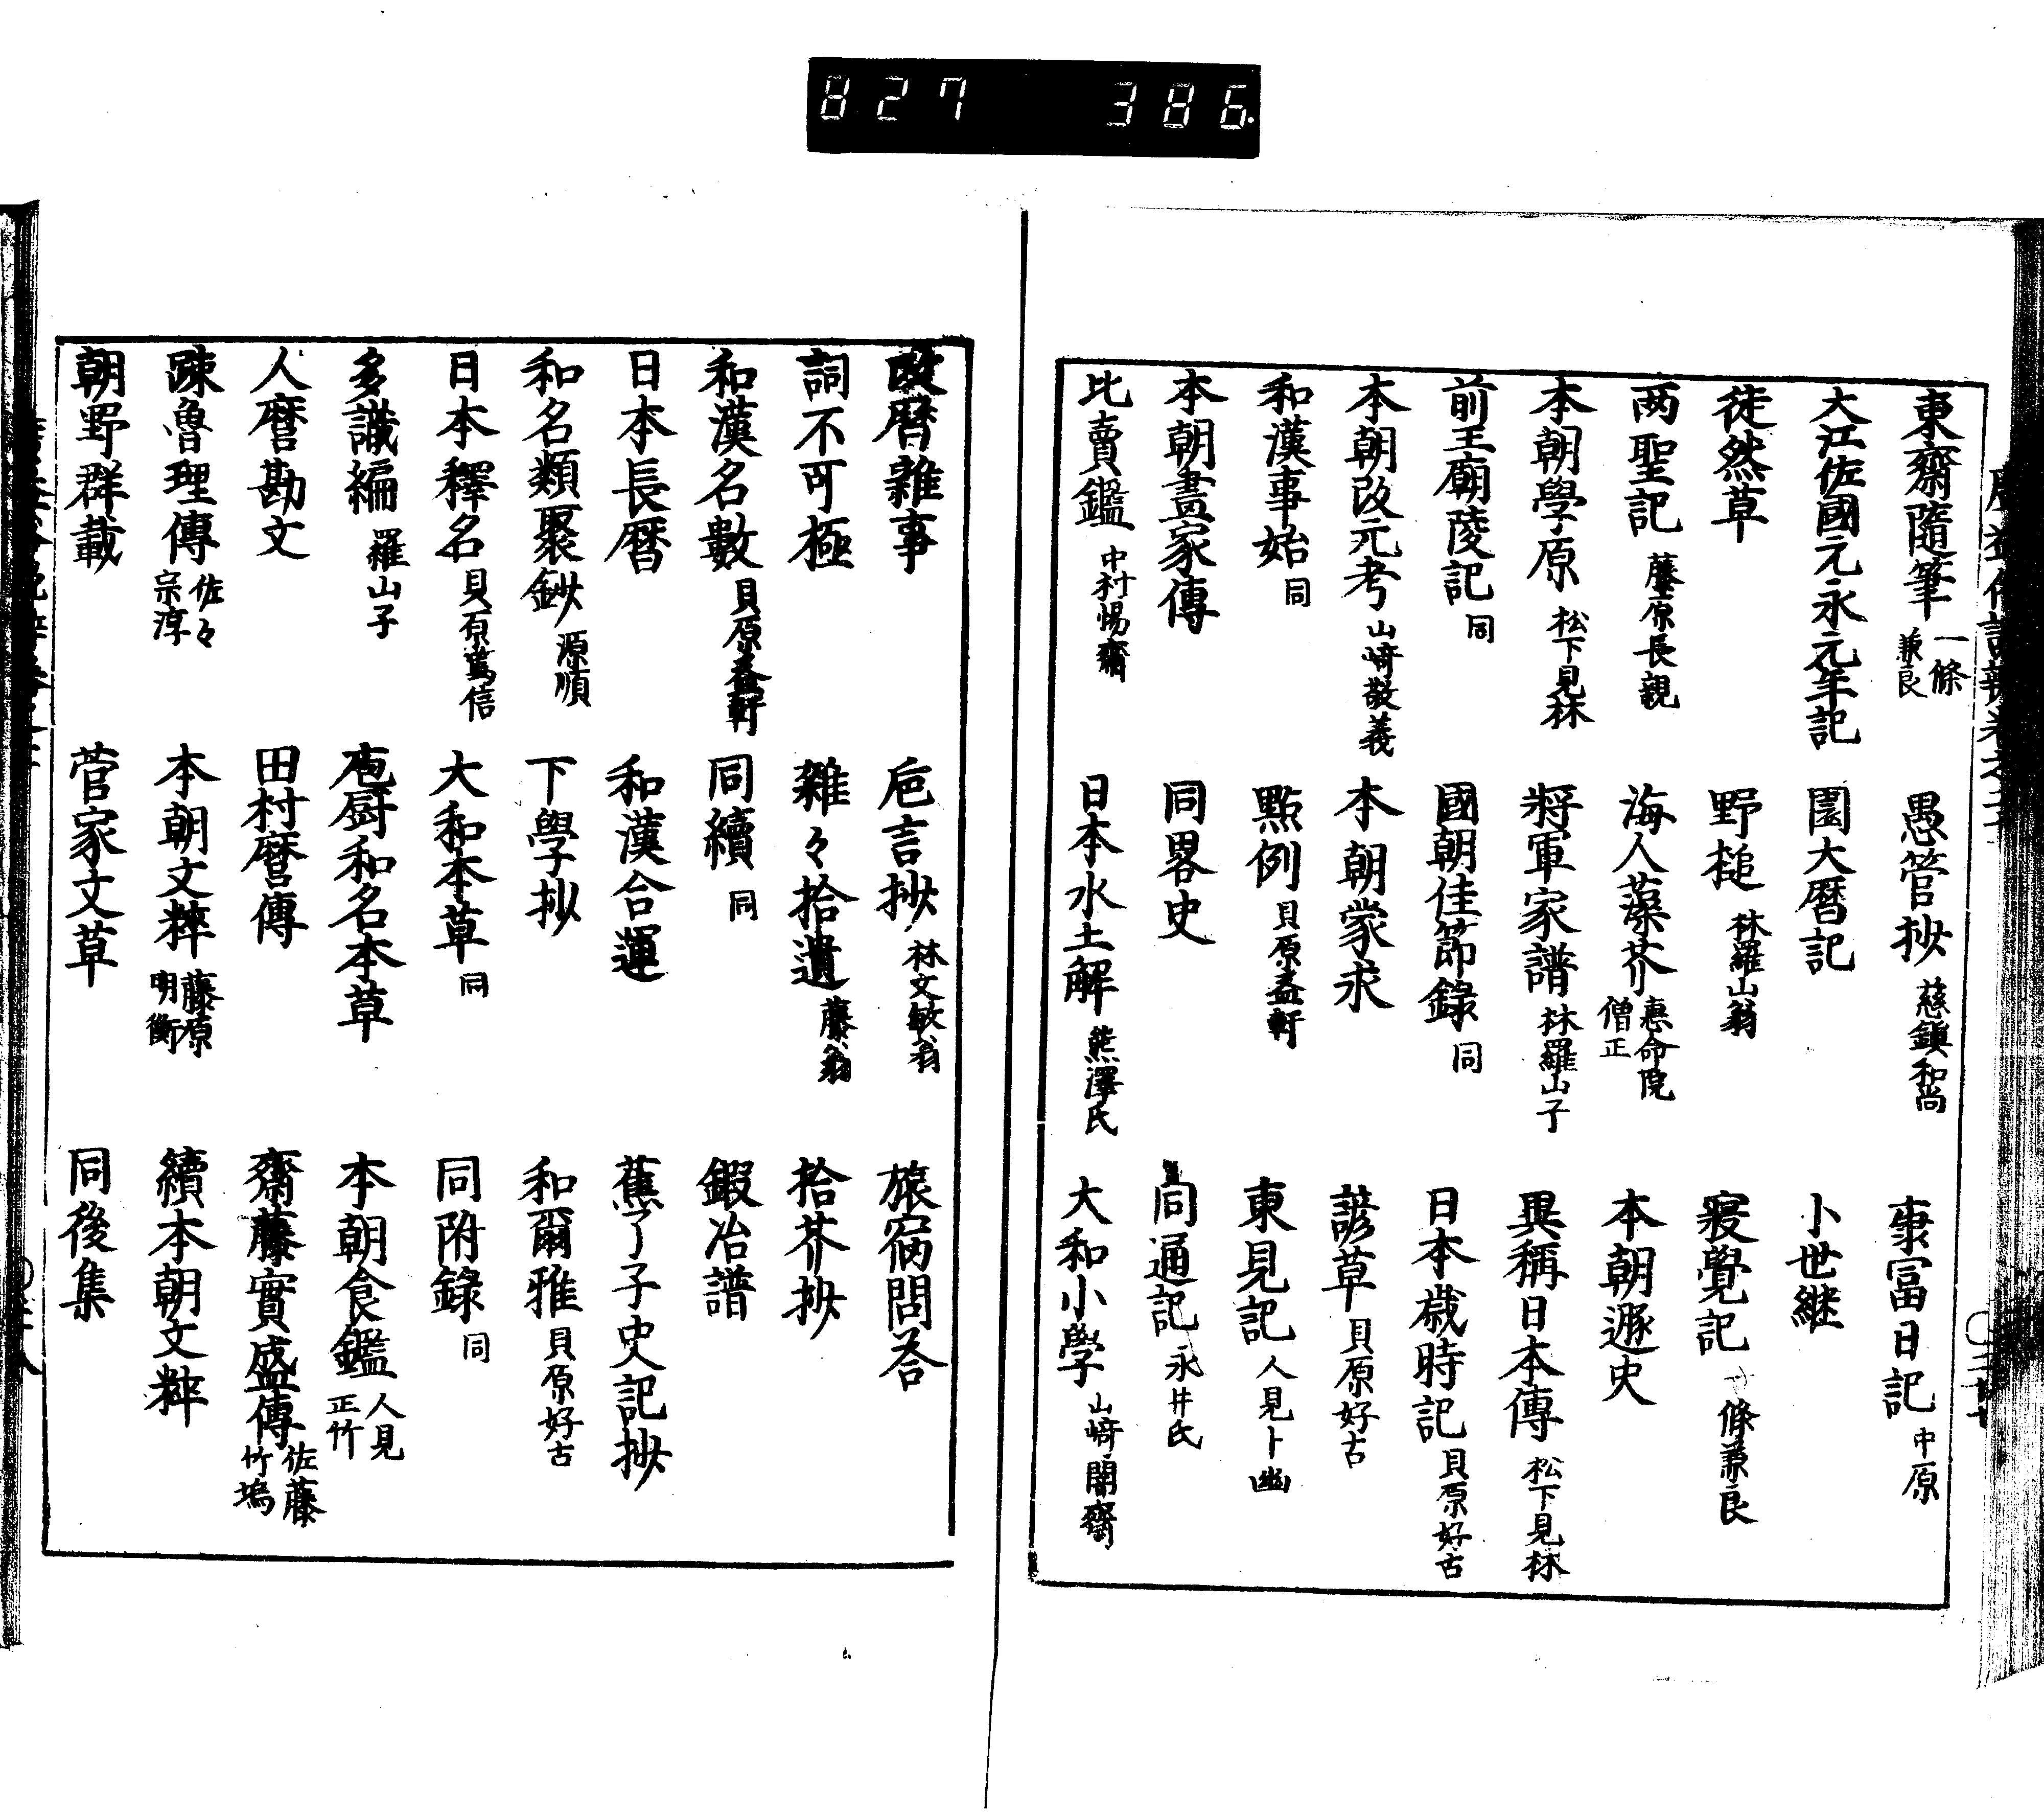 827 386.
東齋隨筆 一條兼良 愚管抄 慈鎭和尚 康冨日記 中原
大江佐國元永元年記 園大曆記 卜世継
徒然草 野槌 林羅山翁 寝覺記 一條兼良
两聖記 藤原長親 海人藻芥 惠命院僧正 本朝遯史
本朝學原 松下見林 將軍家譜 林羅山子 異稱日本傳 松下見林
前王廟陵記 同 國朝佳節錄 同 日本歳時記 貝原好古
本朝改元考 山﨑敬義 本朝蒙求 諺草 貝原好古
和漢事始 同 點例 貝原益軒 東見記 人見卜幽
本朝畫家傳 同畧史 同通記 永井氏
比賣鑑 中村惕齋 日本水土解 熊澤氏 大和小學 山﨑闇齋
改曆雜事 巵言抄 林文敏翁 旅宿問荅
詞不可極 雜々拾遺 藤翁 拾芥抄
和漢名數 貝原益軒 同續 同 鍜冶譜
日本長曆 和漢合運 蕉了子史記抄
和名類聚鈔 源順 下學抄 和爾雅 貝原好古
日本釋名 貝原篤信 大和本草 同 同附錄 同
多識編 羅山子 庖厨和名本草 本朝食鑑 人見正竹
人麿勘文 田村麿傳 齋藤實盛傳 佐藤竹塢
踈魯理傳 佐々宗淳 本朝文粹 藤原明衡 續本朝文粹
朝野群載 菅家文草 同後集